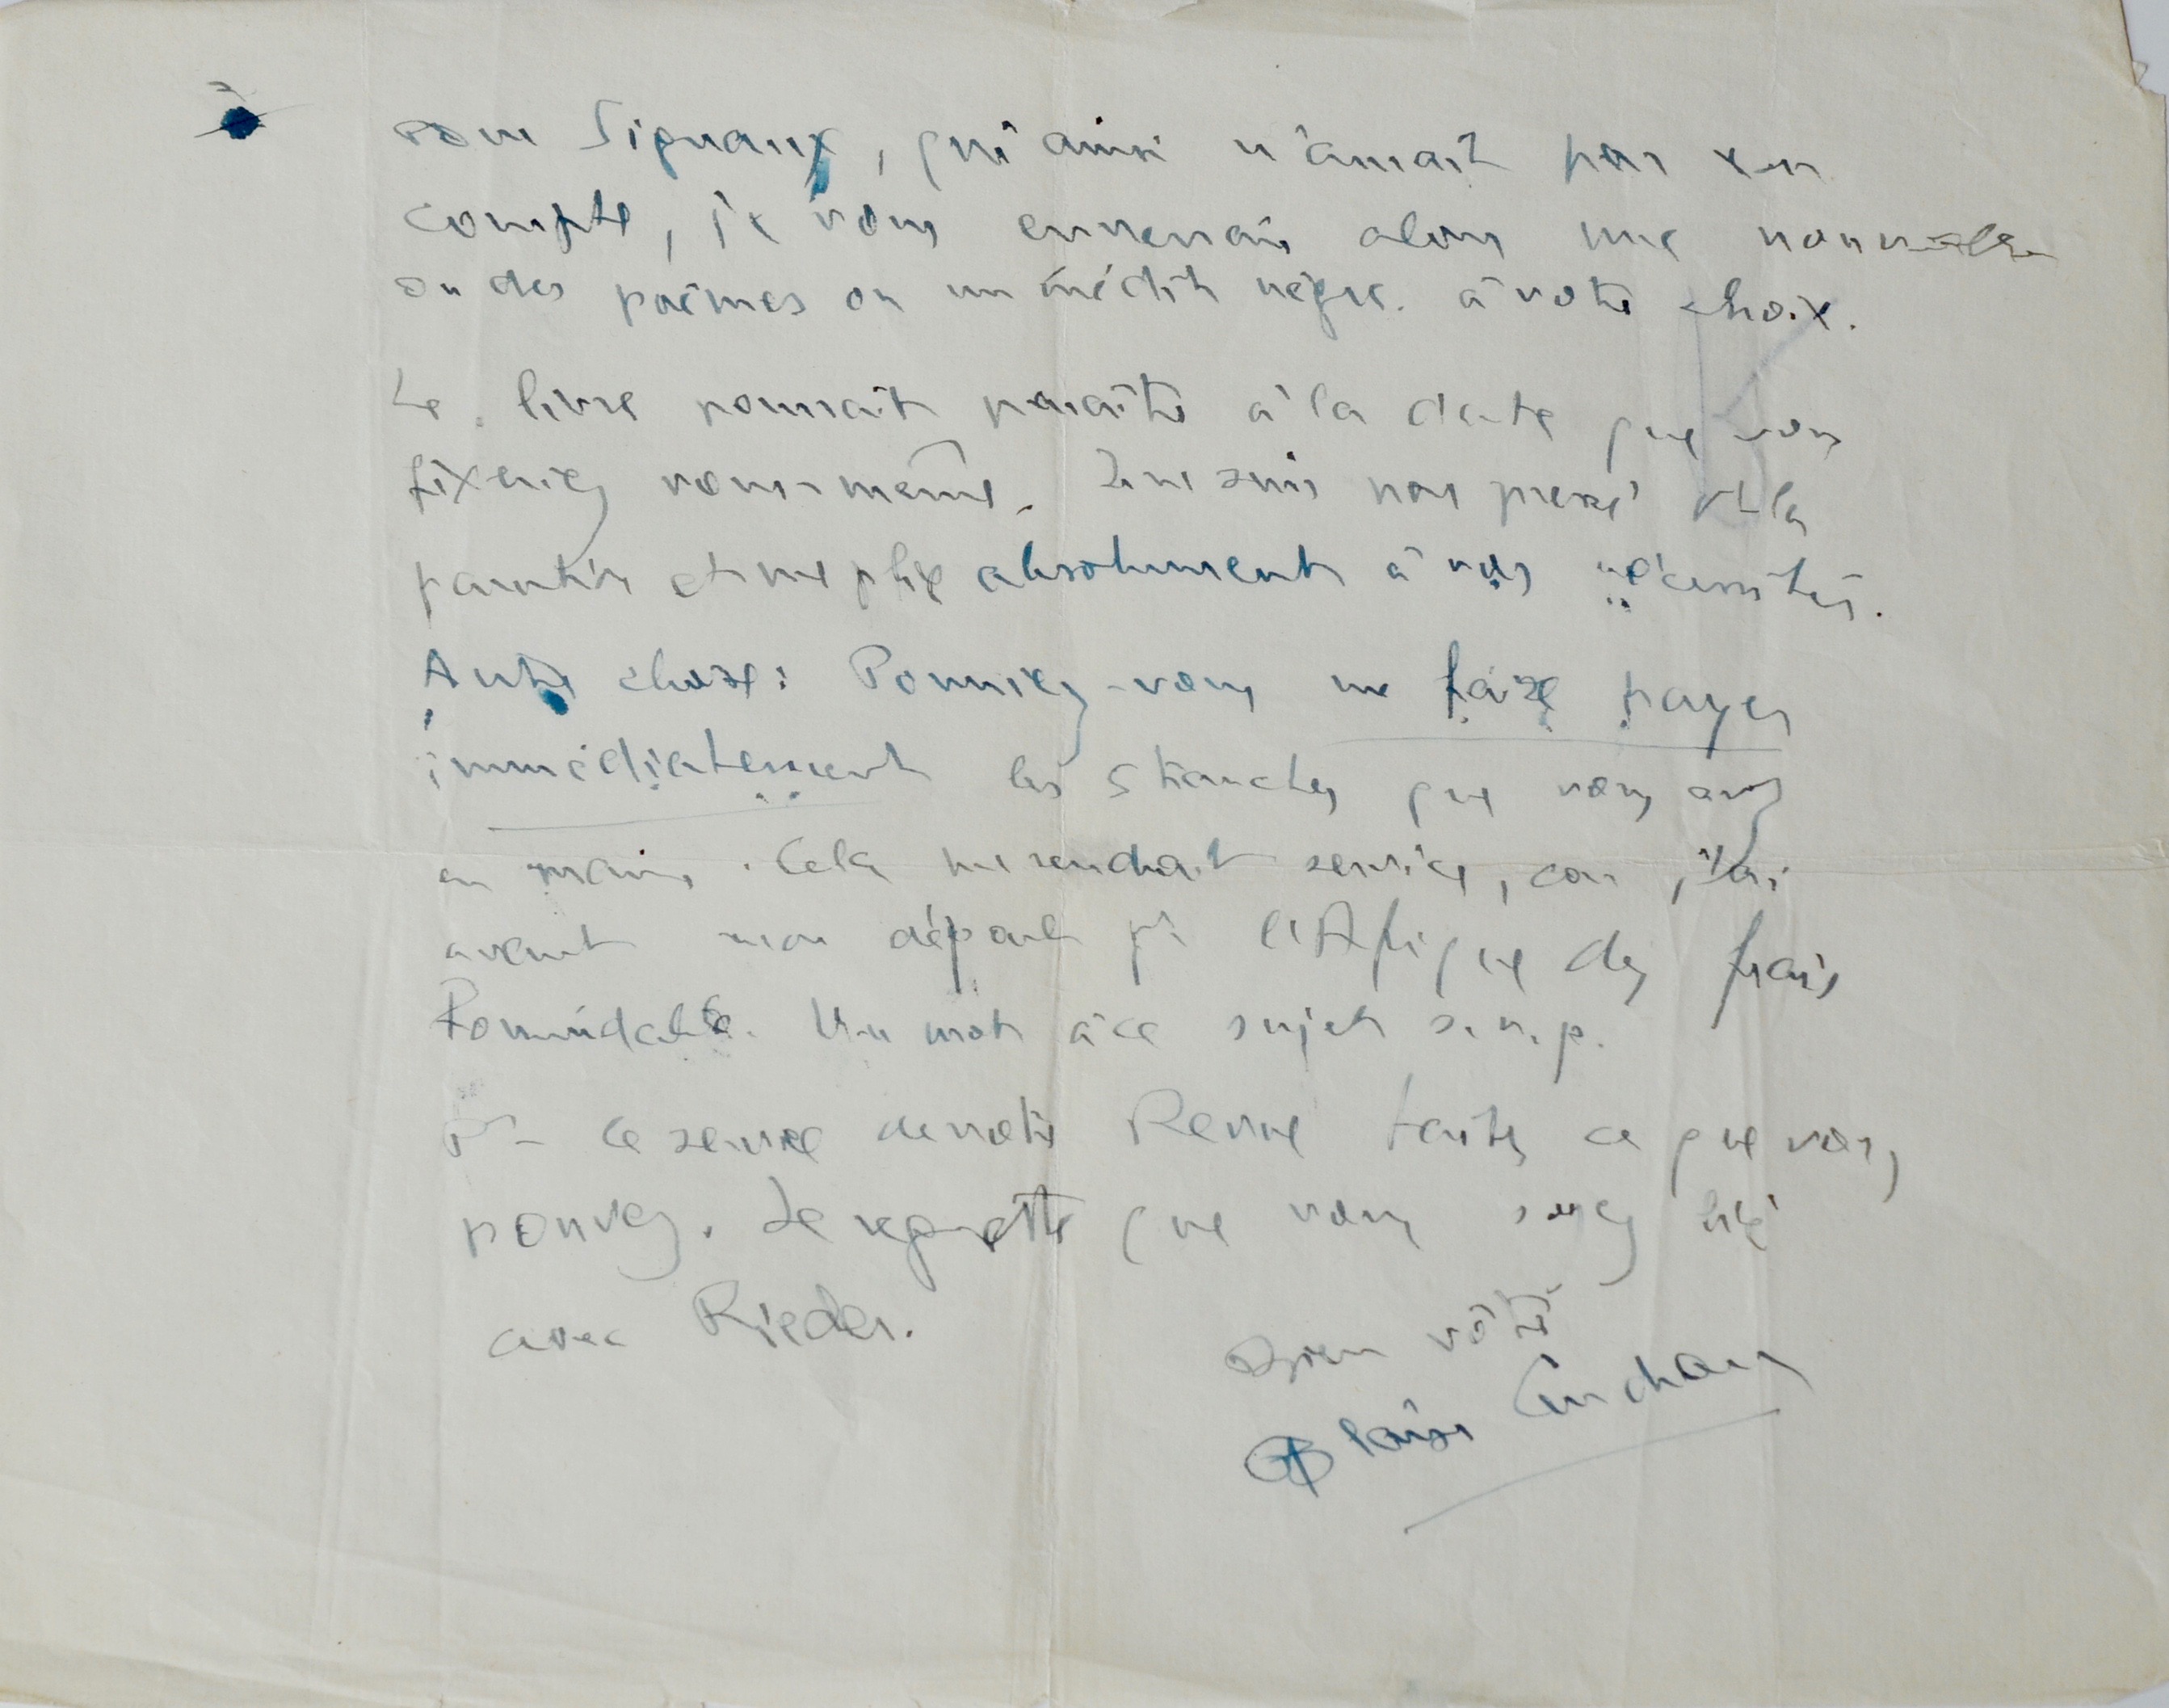 2
pour Signaux, qui ainsi n'aurait pas son
compte, je vous enverrais alors une nouvelle
ou des poèmes ou un inédit nègre. à votre choix.
Le livre pourrait paraître à la date que vous
fixeriez vous-même. Je ne suis pas pressé de la
parution et me plie absolument à vos nécessités.
Autre chose: Pourriez-vous me faire payer
immédiatement les 5 tranches que vous avez
en mains. Cela me rendrait service, car j'ai
avant mon départ pr l'Afrique des frais
formidables. Un mot à ce sujet s.v.p.
Pr le service de votre Revue faites ce que vous
pouvez. Je regrette que vous soyez lié
avec Rieder.
Bien vôtre
Blaise Cendrars